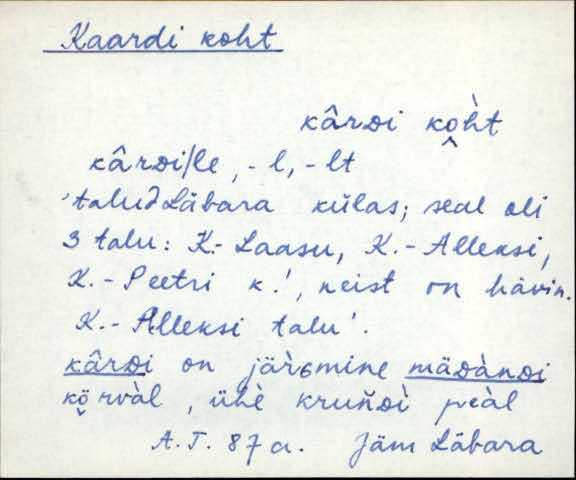 Kaardi koht
kârᴅi ko̭h̀t
kârᴅi/le, -l, -lt
'talud Läbara külas; seal oli
3 talu: K.-Laasu, K.-Alleksi,
K.-Peetri k.!, neist on hävin.
K.-Alleksi talu'.
kârᴅi on järɢmine mäᴅànᴅi
kö̬rvàl, ühè kruńᴅì peàl
A.T. 87 a. Jäm Läbara